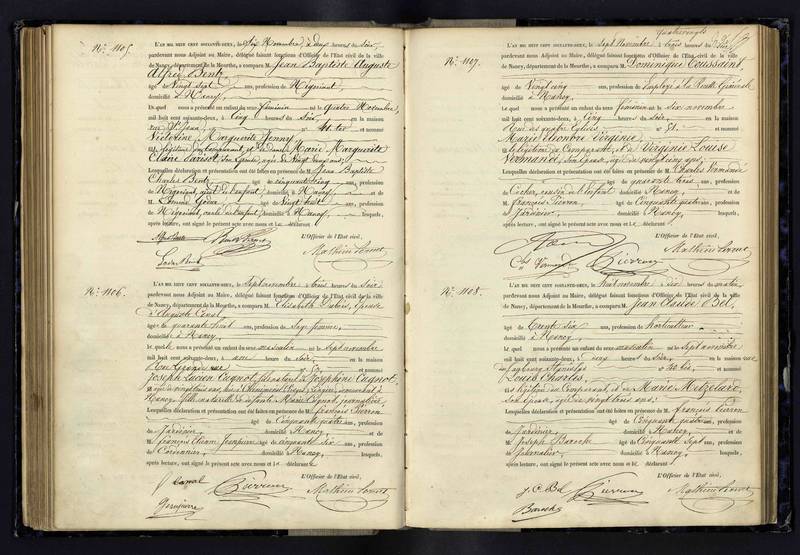 N°. 1105.
L'AN MIL HUIT CENT SOIXANTE-DEUX, le Six Novembre, à deux heures du Soir,
pardevant nous Adjoint au Maire, délégué faisant fonctions d'Officier de l'Etat civil de la ville
de Nancy, département de la Meurthe, a comparu M. Jean Baptiste Auguste
Alfred Bentz
âgé de Vingt Sept ans, profession de Négociant,
domicilié à Nancy,
Lequel nous a présenté un enfant du sexe féminin né le quatre Novembre,
mil huit cent soixante-deux, à Cinq heures du Soir, en la maison
rue St Jean, n° 41 ter et nommé
Victorine Marguerite Jenny,
fille légitime du Comparant, et de dame Marie Marguerite
Claire son épouse, âgée de Vingt ans;
Lesquelles déclaration et présentation ont été faites en présence de M. Jean Baptiste
Charles Bentz âgé de cinquante cinq ans, profession
de Négociant, ayeul de l'enfant domicilié à Nancy et de
M. âgé de Vingt huit ans, profession
de Négociant, oncle de l'enfant, domicilié à Nancy lesquels,
après lecture, ont signé le présent acte avec nous et le déclarant
L'Officier de l'Etat civil,
N°. 1106.
L'AN MIL HUIT CENT SOIXANTE-DEUX, le Sept novembre, à trois heures du Soir
pardevant nous Adjoint au Maire, délégué faisant fonctions d'Officier de l'Etat civil de la ville
de Nancy, département de la Meurthe, a comparu M. Elisabeth Dubois, épouse
d'Auguste Canal,
âgée de quarante huit ans, profession de Sage femme,
domiciliée à Nancy,
Laquelle nous a présenté un enfant du sexe masculin né le Sept novembre
mil huit cent soixante-deux, à une heure du Soir, en la maison
et nommé
Joseph Lucien Cugnot, fils naturel de Joséphine Cugnot,
Nancy, fille naturelle de Marie Cugnot, journalière,
Lesquelles déclaration et présentation ont été faites en présence de M. François Pierron
âgé de Cinquante quatre ans, profession
de Jardinier, domicilié à Nancy, et de
M. François Etienne âgé de cinquante Six ans, profession
de Cordonnier, domicilié à Nancy, lesquels,
après lecture, ont signé le présent acte avec nous et le déclarante
L'Officier de l'Etat civil,
Canal Pierron
N°. 1107.
L'AN MIL HUIT CENT SOIXANTE-DEUX, le Sept Novembre à trois heures du Soir
pardevant nous Adjoint au Maire, délégué faisant fonctions d'Officier de l'Etat civil de la ville
de Nancy, département de la Meurthe, a comparu M. Dominique Toussaint
âgé de Vingt cinq ans, profession de Employé à la Recette Générale
domicilié à Nancy,
Lequel nous a présenté un enfant du sexe féminin né le Six novembre
mil huit cent soixante-deux, à Cinq heures du Soir, en la maison
Rue des quatre Eglises n° 71 et nommé
Marie Léonore Virginie
fille légitime du Comparant, et de Virginie Louise
son épouse, âgée de vingt cinq ans;
Lesquelles déclaration et présentation ont été faites en présence de M. Charles
âgé de quarante trois ans, profession
de Cocher, cousin de l'enfant domicilié à Nancy et de
M. François Pierron âgé de Cinquante quatre ans, profession
de Jardinier domicilié à Nancy, lesquels,
après lecture, ont signé le présent acte avec nous et le déclarant
L'Officier de l'Etat civil,
Pierron
N°. 1108.
L'AN MIL HUIT CENT SOIXANTE-DEUX, le Huit novembre à dix heures du matin,
pardevant nous Adjoint au Maire, délégué faisant fonctions d'Officier de l'Etat civil de la ville
de Nancy, département de la Meurthe, a comparu M. Jean Claude Bel,
âgé de Trente Six ans, profession de Horticulteur
domicilié à Nancy,
Lequel nous a présenté un enfant du sexe masculin né le Sept novembre
mil huit cent soixante-deux, à cinq heures du Soir, en la maison rue
du faubourg Stanislas et nommé
Louis Charles,
fils légitime du Comparant, et de Marie
son épouse, âgée de vingt trois ans;
Lesquelles déclaration et présentation ont été faites en présence de M. François Pierron
âgé de Cinquante quatre ans, profession
de Jardinier, domicilié à Nancy, et de
M. Joseph âgé de Cinquante Sept ans, profession
de Journalier, domicilié à Nancy, lesquels,
après lecture, ont signé le présent acte avec nous et le déclarant
L'Officier de l'Etat civil,
J. C. Bel Pierron